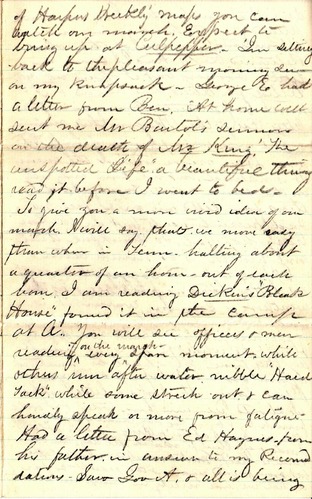 of Harpers Weekly map you can
watch our march. Expect to
bring up at Culpepper - I'm sitting
back to the pleasant morning sun
on my knapsack - George E. had
a letter from Ben. At home Will
sent me Mr Bartol's sermon
on the death of Mr King, "The
unspotted Life" a beautiful thing
read it before I went to bed -
To give you a more vivid idea of our
march. I will say, that we more easy
than when in Tenn. halting about
a quarter of an hour - out of each
hour, I am reading Dickins "Bleak
House" found it in the camp
at A. You will see officers & men
reading on the march, every spare moment, while
others run after water nibble "Hard
Tack" while some strech out & can
hardly speak or move from fatigue -
Had a letter from Ed Haynes - from
his father, in answer to my Recomen
dation - Saw Gov A. & all is being